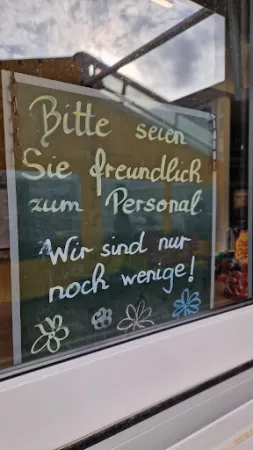 Bitte seien
Sie freundlich
zum Personal.
Wir sind nur
noch wenige!